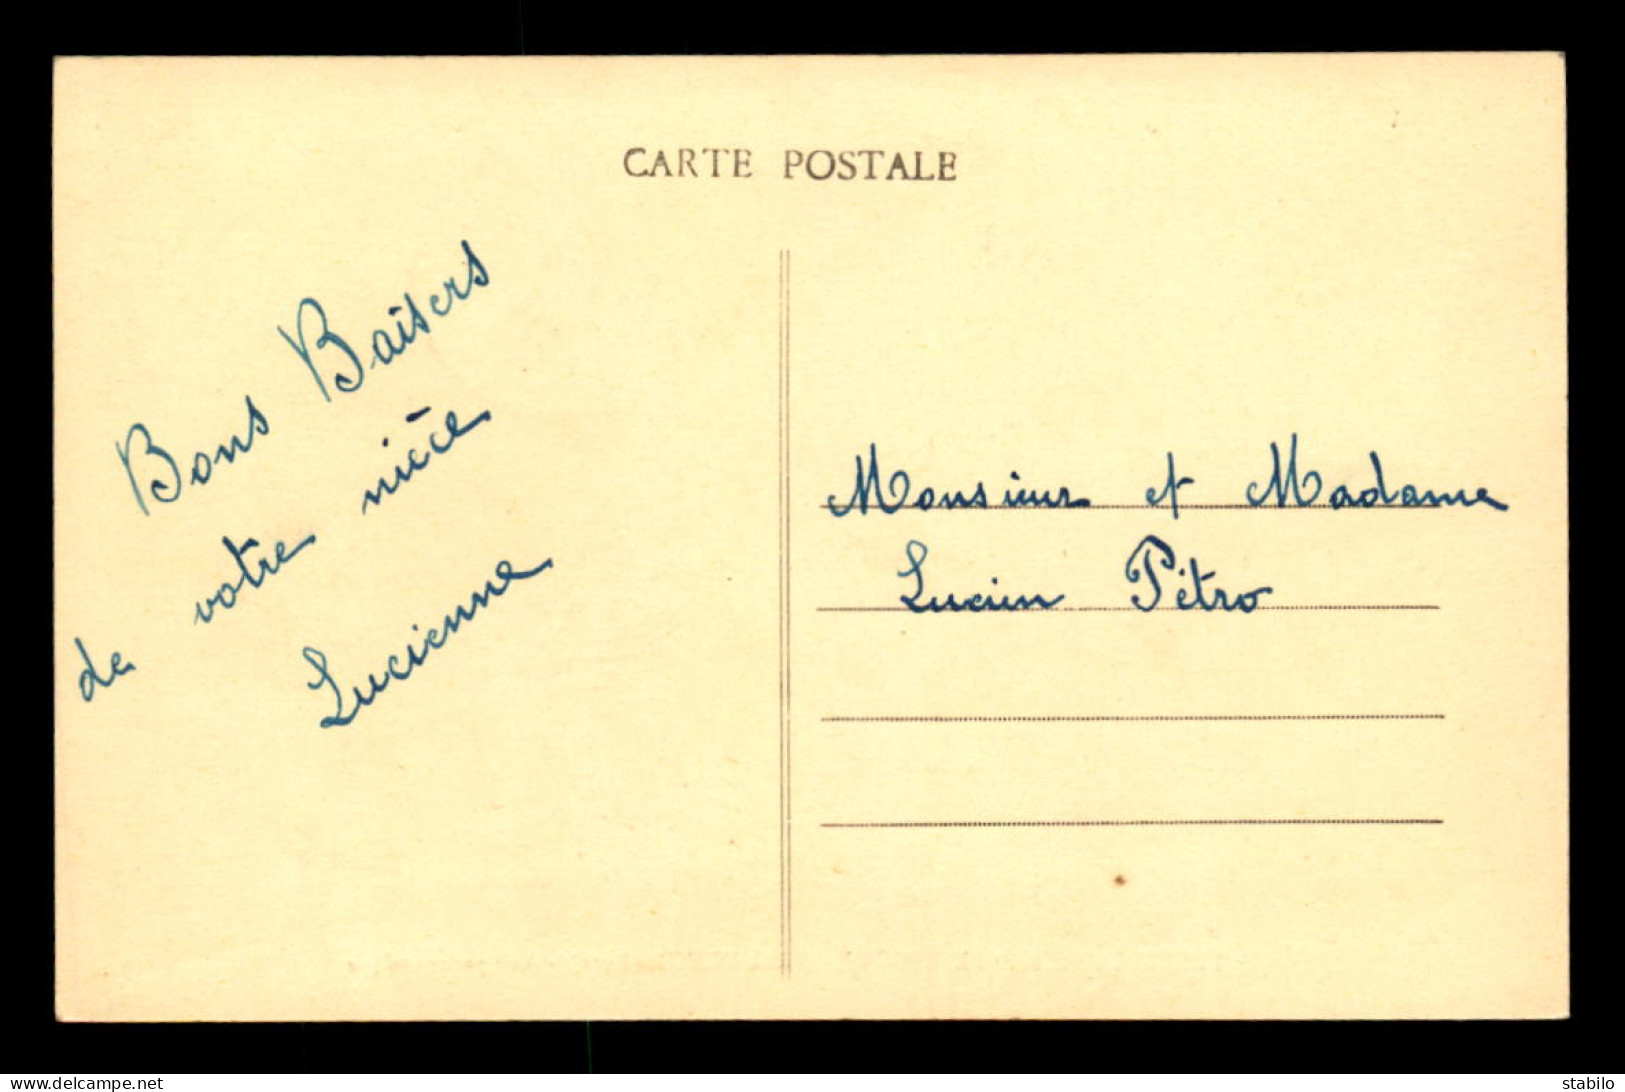 CARTE POSTALE
Bons Baisers
de votre nièce
Lucienne
Monsieur et Madame
Lucien Pétro
delcampe.net
stabilo